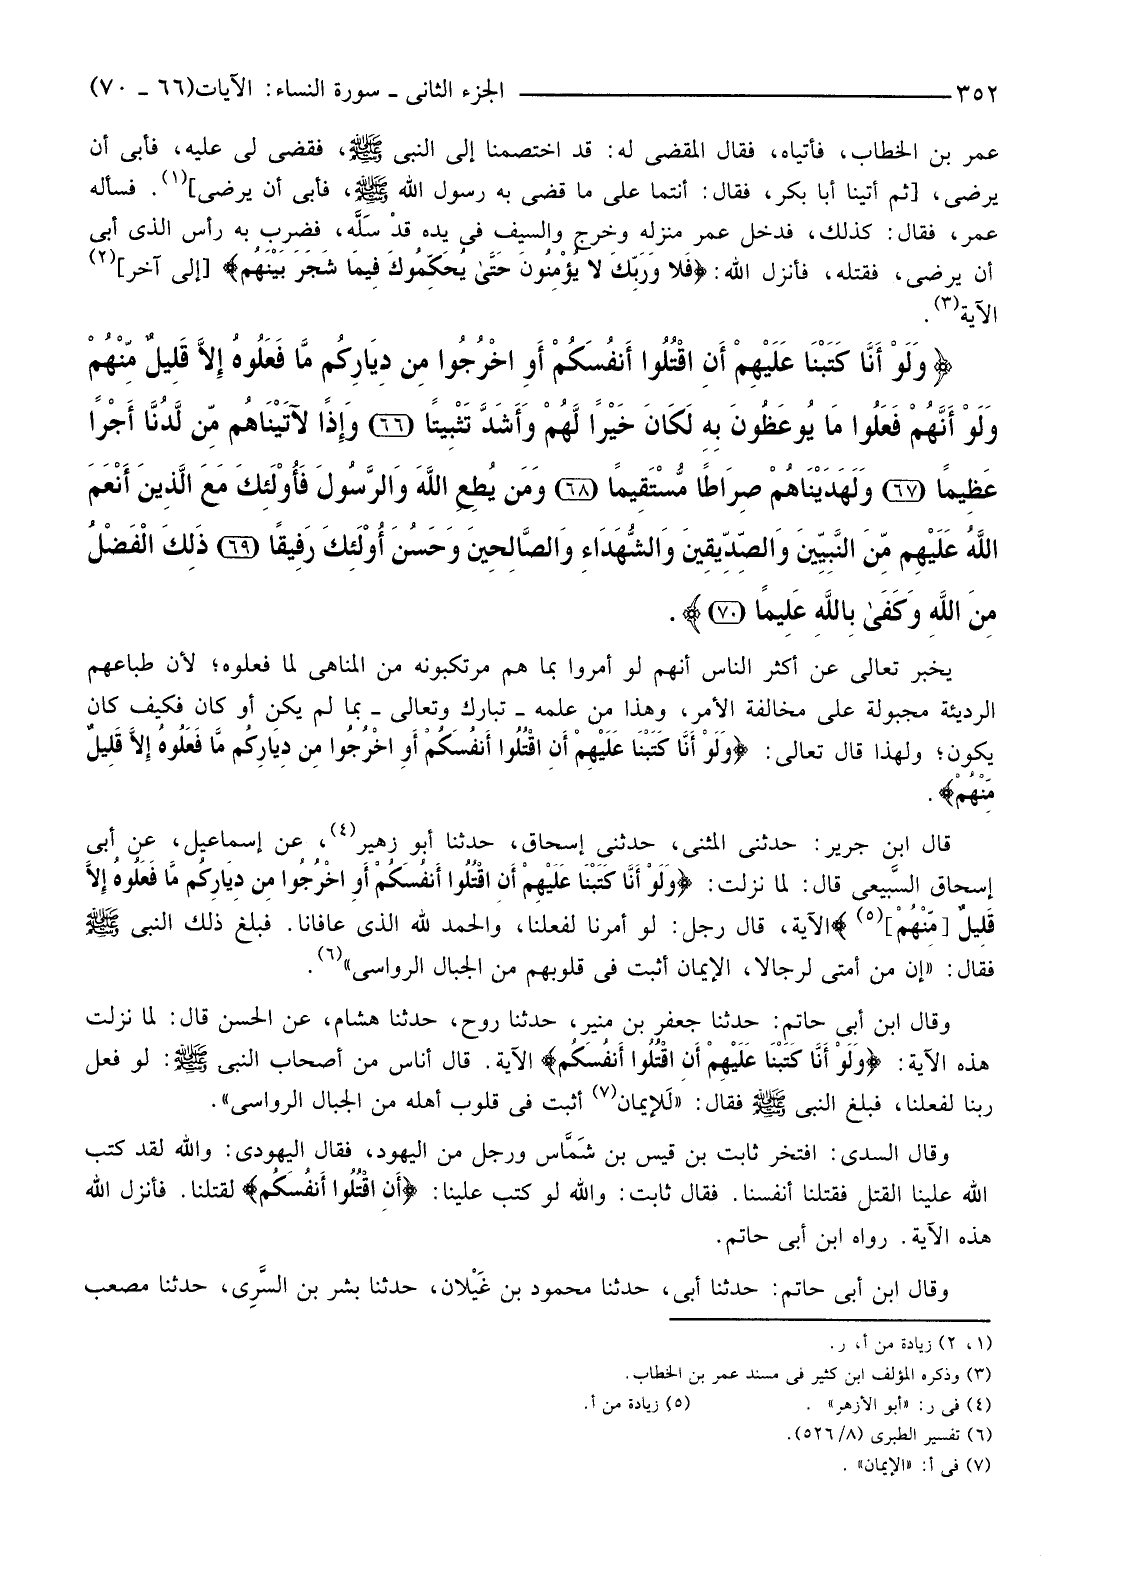 ٣٥٢ ــــــــــ الجزء الثانى ـ سورة النساء: الآيات(٦٦ ـ ٧٠)
عمر بن الخطاب، فأتياه، فقال المقضى له: قد اختصمنا إلى النبى ﷺ، فقضى لى عليه، فأبى أن
يرضى، [ثم أتينا أبا بكر، فقال: أنتما على ما قضى به رسول الله ﷺ، فأبى أن يرضى](١). فسأله
عمر، فقال: كذلك، فدخل عمر منزله وخرج والسيف فى يده قدْ سَلَّه، فضرب به رأس الذى أبى
أن يرضى، فقتله، فأنزل الله: ﴿فَلا وَرَبِّكَ لا يُؤْمِنُونَ حَتَّىٰ يُحَكِّمُوكَ فِيمَا شَجَرَ بَيْنَهُم﴾ [إلى آخر](٢)
الآية(٣).
﴿وَلَوْ أَنَّا كَتَبْنَا عَلَيْهِمْ أَنِ اقْتُلُوا أَنفُسَكُمْ أَوِ اخْرُجُوا مِن دِيَارِكُم مَّا فَعَلُوهُ إِلاَّ قَلِيلٌ مِّنْهُمْ
وَلَوْ أَنَّهُمْ فَعَلُوا مَا يُوعَظُونَ بِهِ لَكَانَ خَيْرًا لَّهُمْ وَأَشَدَّ تَثْبِيتًا (٦٦) وَإِذًا لآتَيْنَاهُم مِّن لَّدُنَّا أَجْرًا
عَظِيمًا (٦٧) وَلَهَدَيْنَاهُمْ صِرَاطًا مُّسْتَقِيمًا (٦٨) وَمَن يُطِعِ اللَّهَ وَالرَّسُولَ فَأُوْلَئِكَ مَعَ الَّذِينَ أَنْعَمَ
اللَّهُ عَلَيْهِم مِّنَ النَّبِيِّينَ وَالصِّدِّيقِينَ وَالشُّهَدَاءِ وَالصَّالِحِينَ وَحَسُنَ أُوْلَئِكَ رَفِيقًا (٦٩) ذَلِكَ الْفَضْلُ
مِنَ اللَّهِ وَكَفَىٰ بِاللَّهِ عَلِيمًا (٧٠)﴾.
يخبر تعالى عن أكثر الناس أنهم لو أمروا بما هم مرتكبونه من المناهى لما فعلوه؛ لأن طباعهم
الرديئة مجبولة على مخالفة الأمر، وهذا من علمه ـ تبارك وتعالى ـ بما لم يكن أو كان فكيف كان
يكون؛ ولهذا قال تعالى: ﴿وَلَوْ أَنَّا كَتَبْنَا عَلَيْهِمْ أَنِ اقْتُلُوا أَنفُسَكُمْ أَوِ اخْرُجُوا مِن دِيَارِكُم مَّا فَعَلُوهُ إِلاَّ قَلِيلٌ
مِّنْهُمْ﴾.
قال ابن جرير: حدثنى المثنى، حدثنى إسحاق، حدثنا أبو زهير(٤)، عن إسماعيل، عن أبى
إسحاق السَّبِيعى قال: لما نزلت: ﴿وَلَوْ أَنَّا كَتَبْنَا عَلَيْهِمْ أَنِ اقْتُلُوا أَنفُسَكُمْ أَوِ اخْرُجُوا مِن دِيَارِكُم مَّا فَعَلُوهُ إِلاَّ
قَلِيلٌ [مِّنْهُمْ](٥)﴾الآية، قال رجل: لو أمرنا لفعلنا، والحمد لله الذى عافانا. فبلغ ذلك النبى ﷺ
فقال: «إن من أمتى لرجالا، الإيمان أثبت فى قلوبهم من الجبال الرواسى»(٦).
وقال ابن أبى حاتم: حدثنا جعفر بن منير، حدثنا روح، حدثنا هشام، عن الحسن قال: لما نزلت
هذه الآية: ﴿وَلَوْ أَنَّا كَتَبْنَا عَلَيْهِمْ أَنِ اقْتُلُوا أَنفُسَكُم﴾ الآية. قال أناس من أصحاب النبى ﷺ: لو فعل
ربنا لفعلنا، فبلغ النبى ﷺ فقال: «لَلإيمان(٧) أثبت فى قلوب أهله من الجبال الرواسى».
وقال السدى: افتخر ثابت بن قيس بن شَمَّاس ورجل من اليهود، فقال اليهودى: والله لقد كتب
الله علينا القتل فقتلنا أنفسنا. فقال ثابت: والله لو كتب علينا: ﴿أَنِ اقْتُلُوا أَنفُسَكُم﴾ لقتلنا. فأنزل الله
هذه الآية. رواه ابن أبى حاتم.
وقال ابن أبى حاتم: حدثنا أبى، حدثنا محمود بن غَيْلان، حدثنا بشر بن السَّرِى، حدثنا مصعب
(١، ٢) زيادة من أ، ر.
(٣) وذكره المؤلف ابن كثير فى مسند عمر بن الخطاب.
(٤) فى ر: «أبو الأزهر». (٥) زيادة من أ.
(٦) تفسير الطبرى (٥٢٦/٨).
(٧) فى أ: «الإيمان».